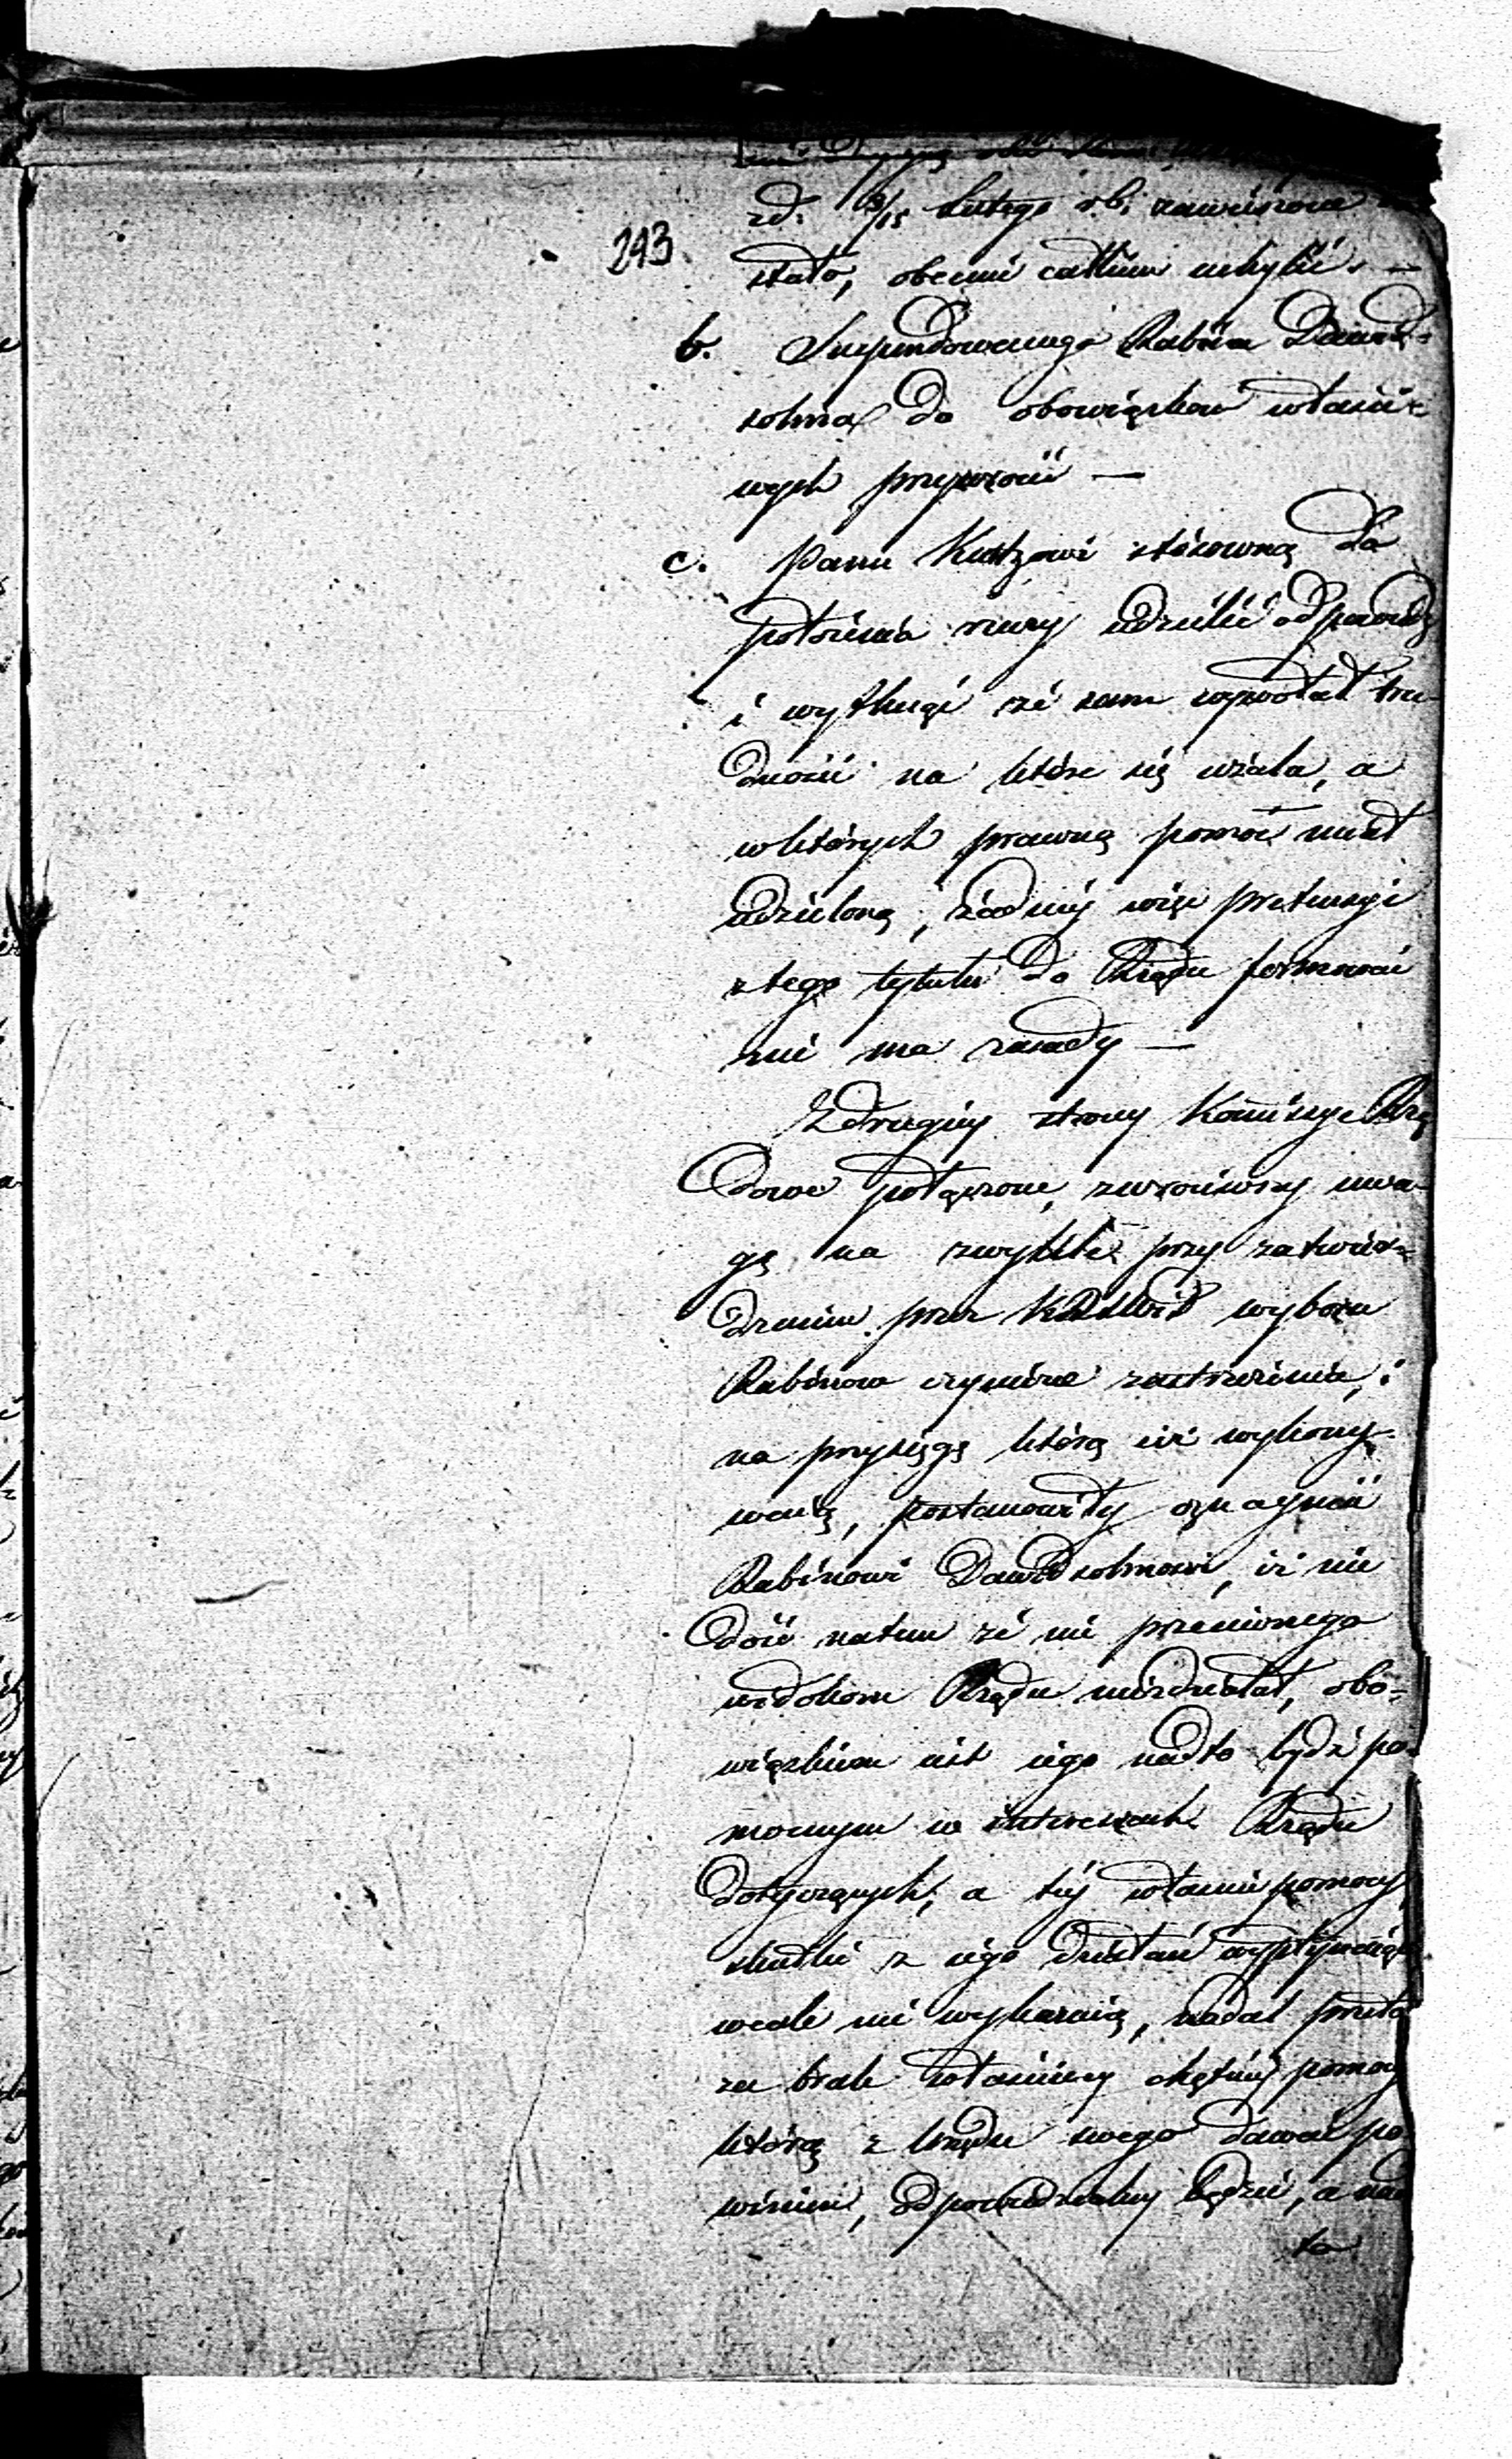 zd. 3/15 Lutego r.b. zawieszone
243
stało, obecnie całkiem uchylić. —
b. Suspendowanego Rabina Dawid=
sohna do obowiązków właści=
wych przywrócić —
c. Panu Kurtzowi stósowną do
położenia rzeczy udzielić odpowiedź
i wytknąć że sam wywołał tru-
dności na które się użala, a
w których prawną pomoc miał
udzieloną, żadnéj więc pretensyi
z tego tytułu do Rządu formować
nie ma zasady —
Z drugiéj strony Kommissye Rzą
dowe połączone, zwróciwszy uwa-
gę na zwykłe przy zatwier=
dzeniu przez wyboru
Rabinow czynione zastrzeżenia, i
na przysięgę którą ciż wykony-
waią, postanowiły oznaymić
Rabinowi Dawidsohnowi, iż nie
dość natem że nie przeciwnego
widokom Rządu niezdziałał, obo=
wiązkiem iest iego nadto bydź po-
mocnym w interessach Rządu
dotyczących; a téj właśnie pomocy
skutki z iego działań wypłynąć
wcale nie wykazuią, nadal przeto
za brak właściwéj chętnéj pomocy
którą z Urzędu swego dawać po-
winien, odpowiedzialny będzie, a nad
to